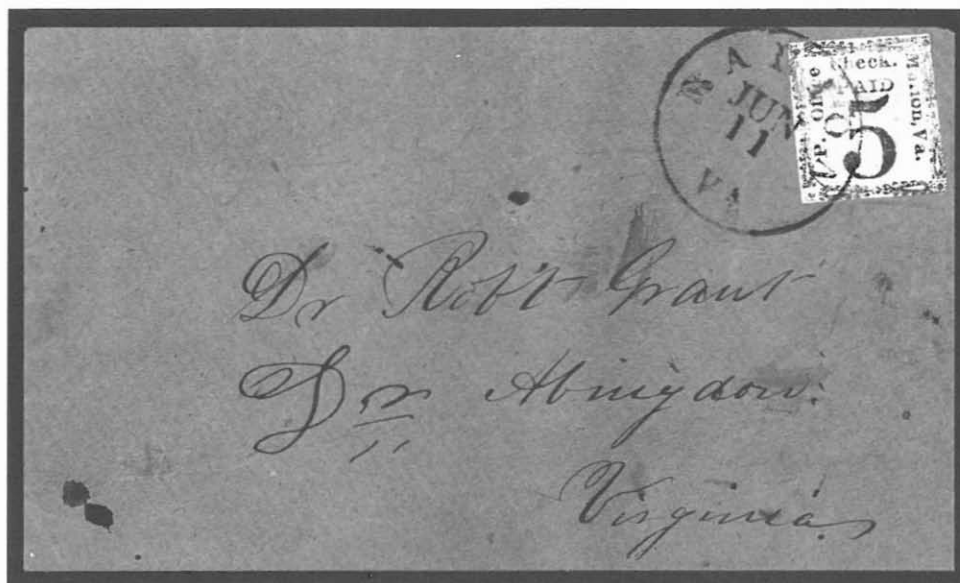 MARION
JUN
11
VA
P. Office
Check.
PAID
5
Marion, Va.
Dr Robt Grant
Abingdon.
Virginia